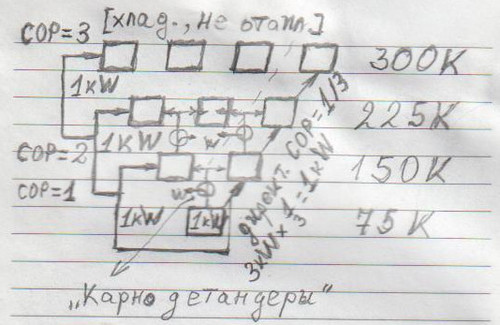 [хлад., не отапл.]
COP=3
300K
1kW
225K
1kW
w
COP=2
150K
COP=1
w
1kW
1kW
75K
директ. COP=1/3
3kW×1/3=1kW
„Карно детандеры"